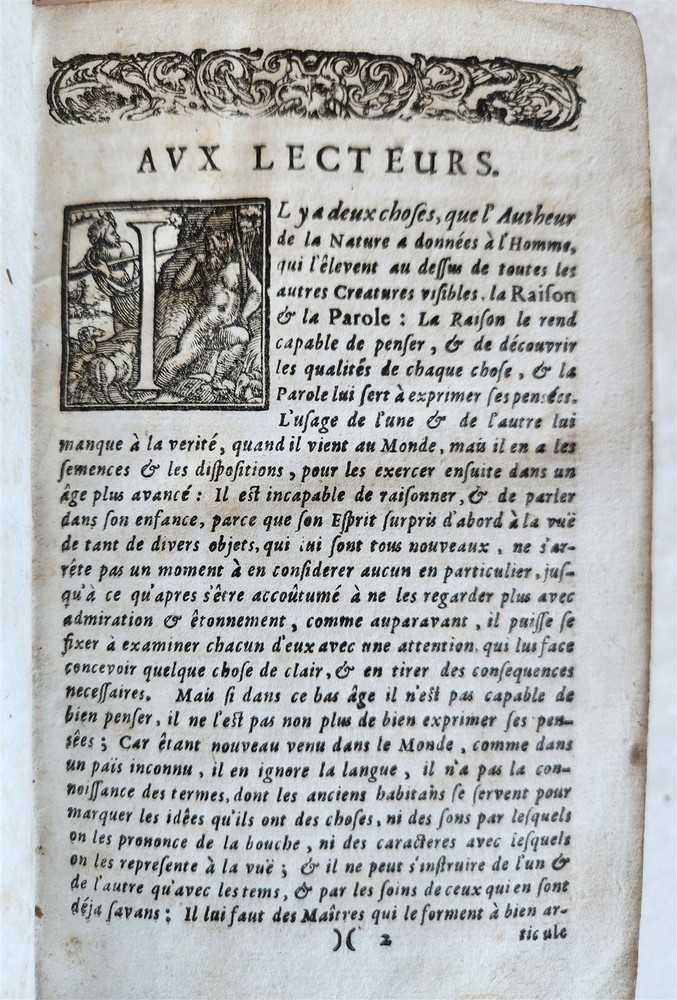 AVX LECTEURS.
IL y a deux choses, que l'Autheur
de la Nature a données à l'Homme,
qui l'êlevent au dessus de toutes les
autres Creatures visibles, la Raison
& la Parole : La Raison le rend
capable de penser, & de découvrir
les qualités de chaque chose, & la
Parole lui sert à exprimer ses pensées.
L'usage de l'une & de l'autre lui
manque à la verité, quand il vient au Monde, mais il en a les
semences & les dispositions, pour les exercer ensuite dans un
âge plus avancé : Il est incapable de raisonner, & de parler
dans son enfance, parce que son Esprit surpris d'abord à la vuë
de tant de divers objets, qui lui sont tous nouveaux, ne s'ar-
rête pas un moment à en considerer aucun en particulier, jus-
qu'à ce qu'apres s'être accoûtumé à ne les regarder plus avec
admiration & êtonnement, comme auparavant, il puisse se
fixer à examiner chacun d'eux avec une attention, qui lui face
concevoir quelque chose de clair, & en tirer des consequences
necessaires. Mais si dans ce bas âge il n'est pas capable de
bien penser, il ne l'est pas non plus de bien exprimer ses pen-
sêes ; Car êtant nouveau venu dans le Monde, comme dans
un païs inconnu, il en ignore la langue, il n'a pas la con-
noissance des termes, dont les anciens habitans se servent pour
marquer les idêes qu'ils ont des choses, ni des sons par lesquels
on les prononce de la bouche, ni des caracteres avec lesquels
on les represente à la vuë ; & il ne peut s'instruire de l'un &
de l'autre qu'avec le tems, & par les soins de ceux qui en sont
déja savans : Il lui faut des Maîtres qui le forment à bien ar-
)( 2 ticule